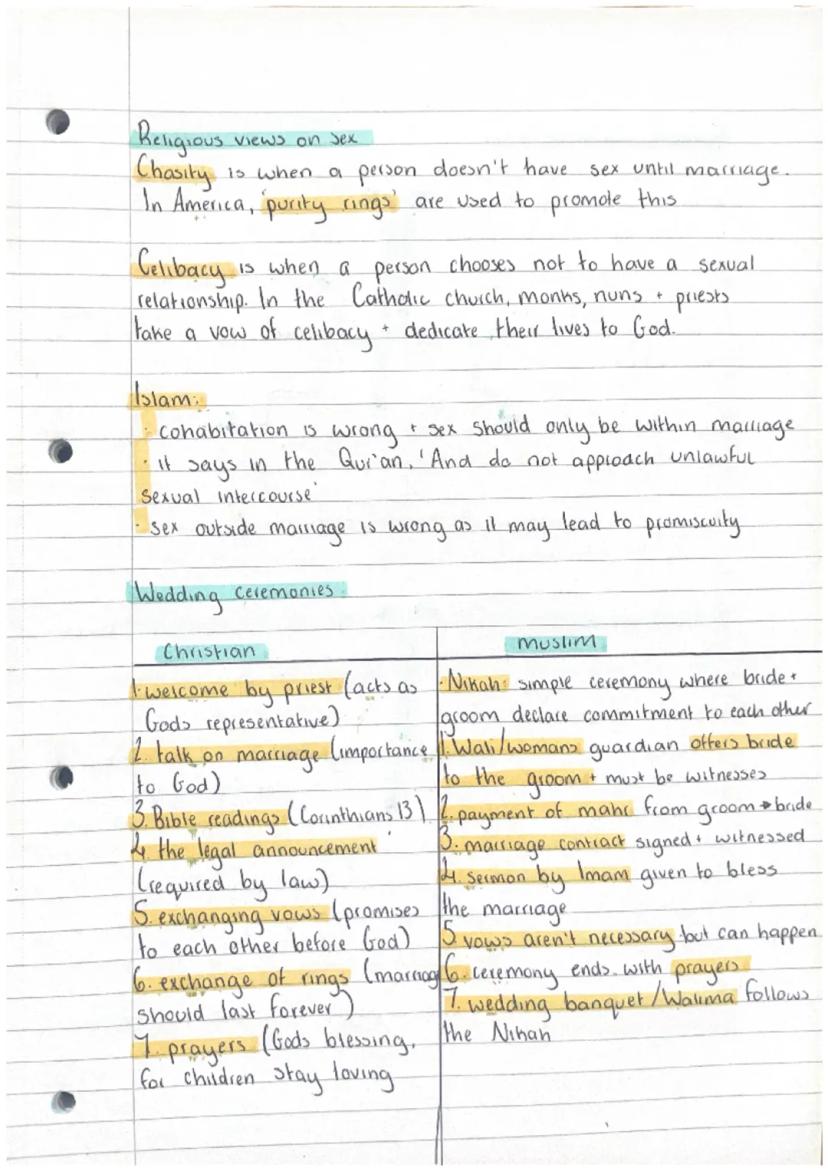 Religious views on sex
Chasity is when a person doesn't have sex until marriage.
In America, 'purity rings' are used to promote this
Celibacy is when a person chooses not to have a sexual
relationship. In the Catholic church, monks, nuns + priests
take a vow of celibacy + dedicate their lives to God.
Islam:
· cohabitation is wrong + sex should only be within marriage
· it says in the Qur'an, 'And do not approach unlawful
sexual intercourse'
· sex outside marriage is wrong as it may lead to promiscuity
Wedding ceremonies
Christian
1. welcome by priest (acts as
Gods representative)
2. talk on marriage (importance
to God)
3. Bible readings (Corinthians 13)
4. the legal announcement
(required by law)
5. exchanging vows (promises
to each other before God)
6. exchange of rings (marriag
should last forever)
7. prayers (Gods blessing,
for children stay loving
muslim
· Nikah: simple ceremony where bride +
groom declare commitment to each other
1. Wali/womans guardian offers bride
to the groom + must be witnesses
2. payment of mahr from groom → bride
3. marriage contract signed + witnessed
4. sermon by Imam given to bless
the marriage
5 vows aren't necessary but can happen
6. ceremony ends with prayers
7. wedding banquet/Walima follows
the Nikah